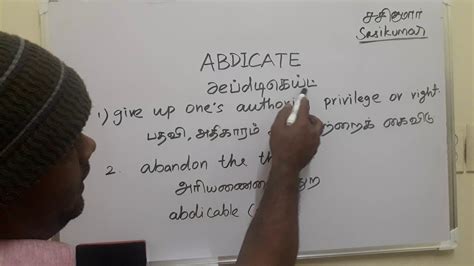 சசிகுமார்
Sasikumar
ABDICATE
அப்டிகெய்ட்
1) give up one's authori privilege or right
பதவி, அதிகாரம் கைவிடு
2. abandon the th
abdicable